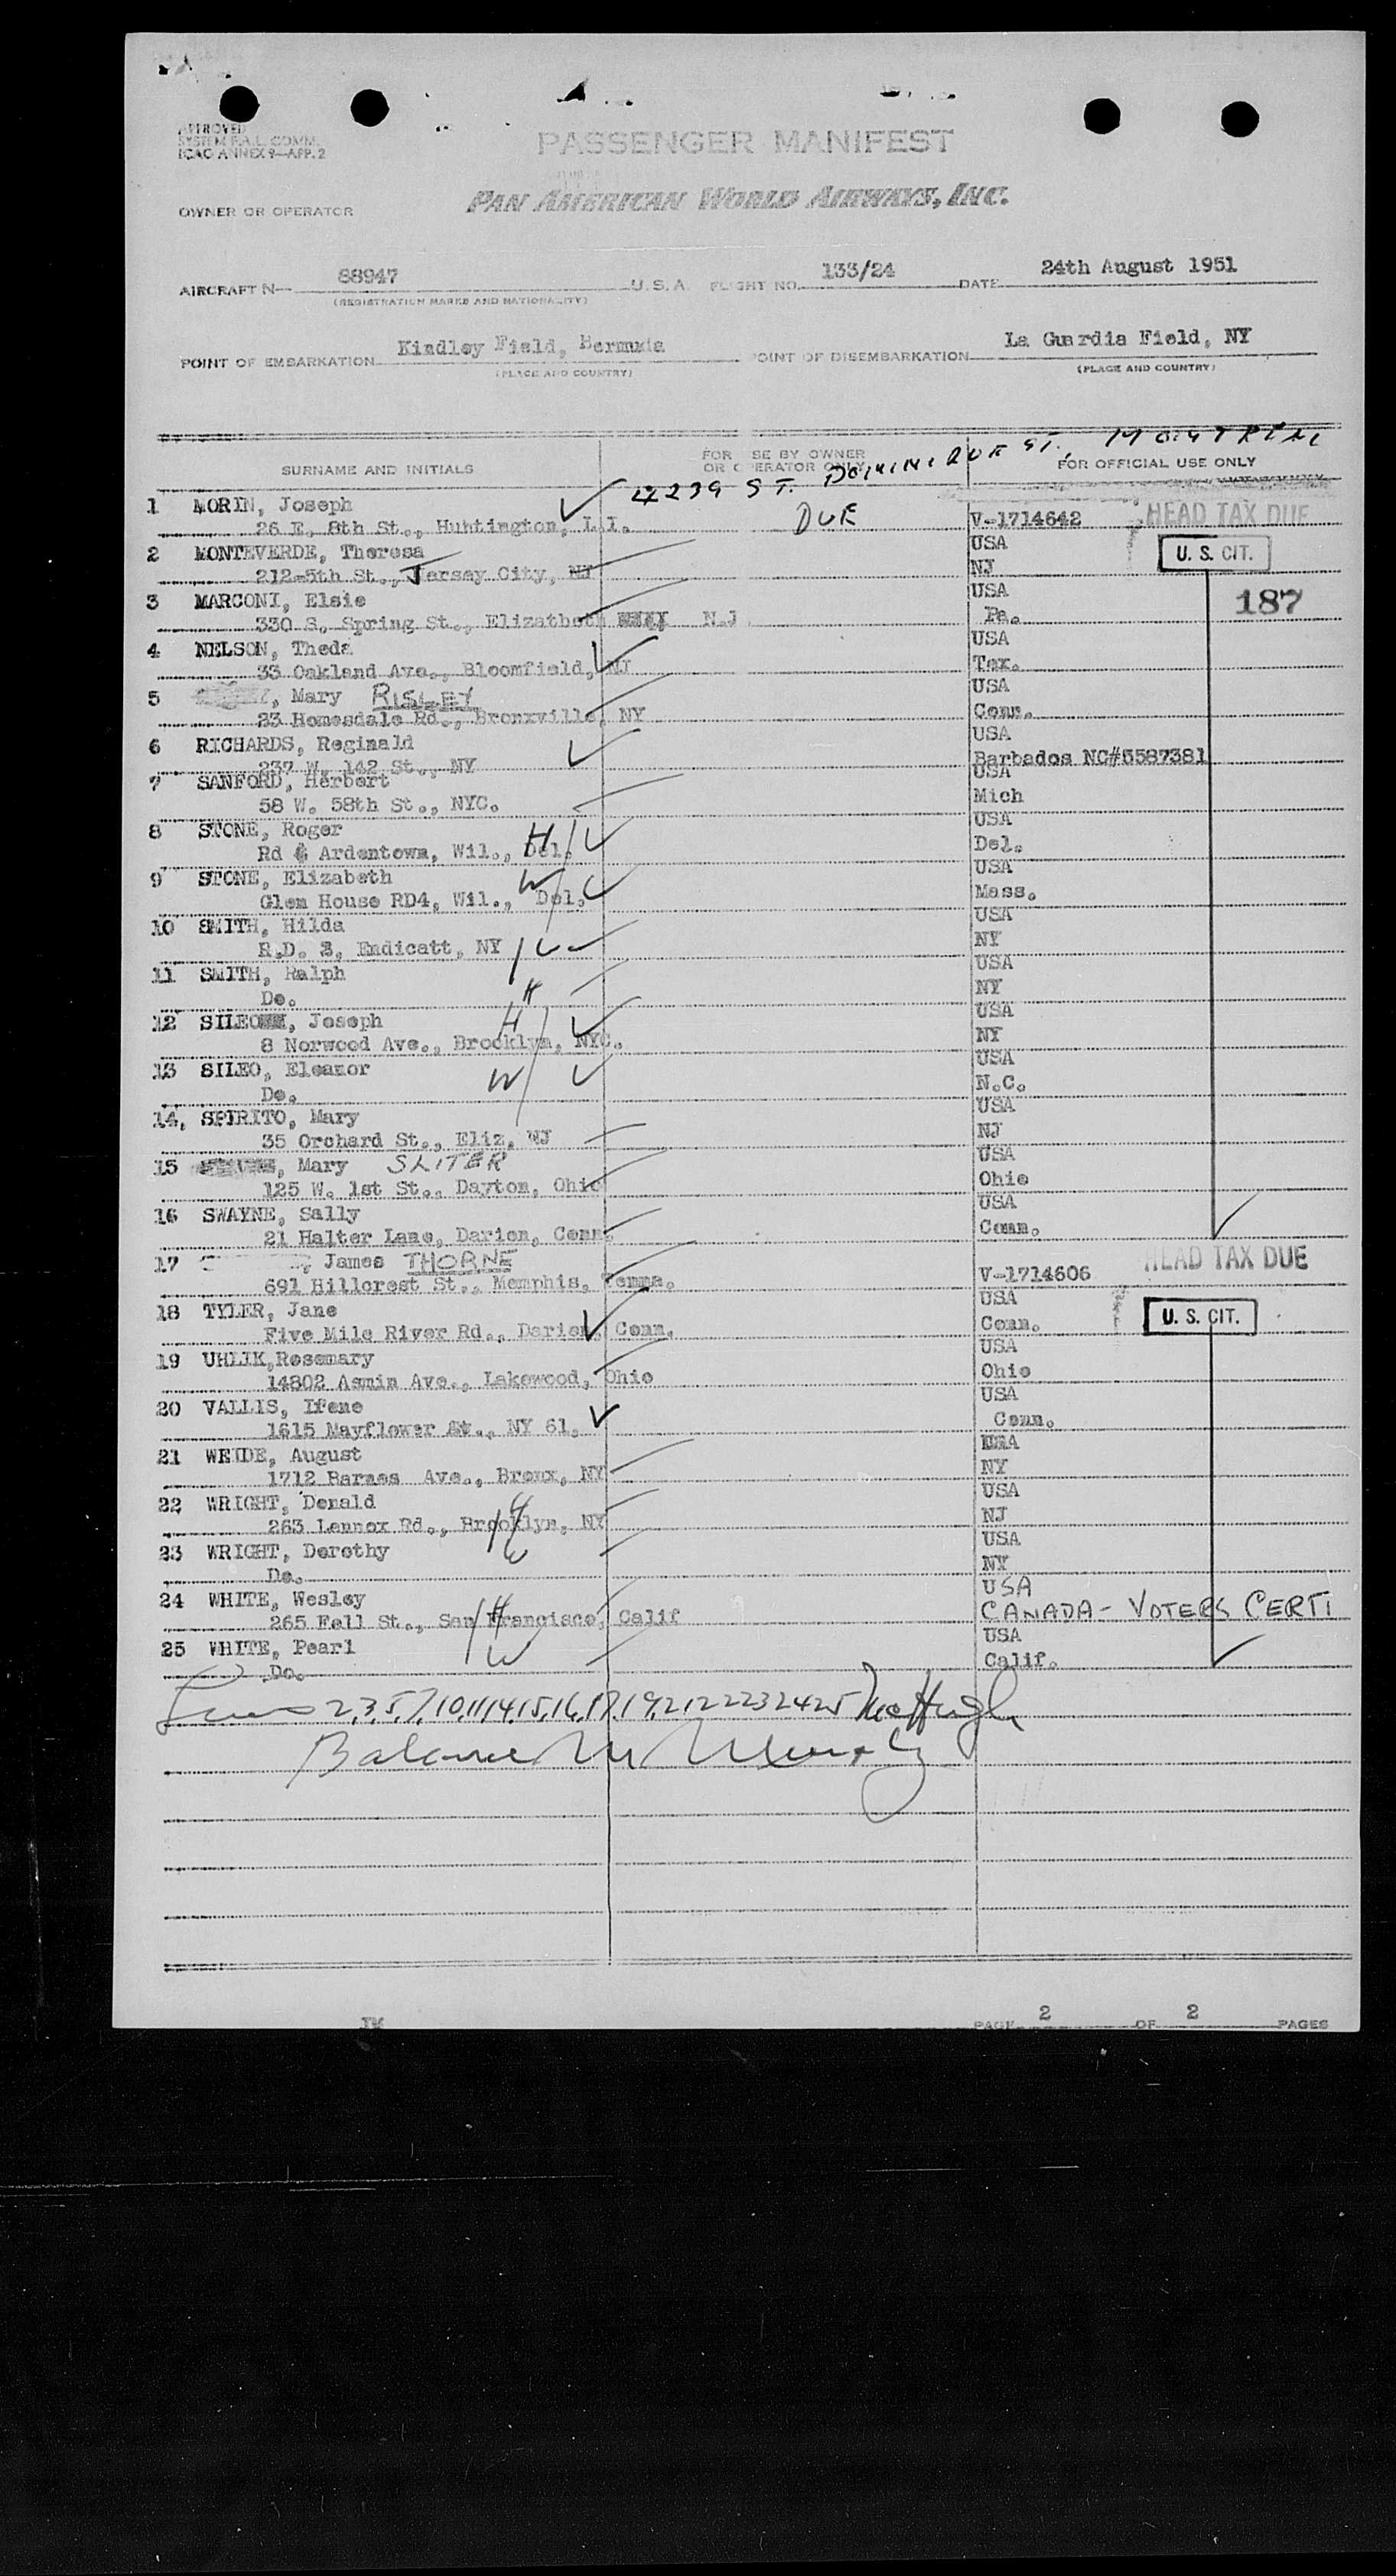 APPROVED
SYSTEM F.A.L. COMM.
ICAO ANNEX 9—APP. 2
PASSENGER MANIFEST
OWNER OR OPERATOR PAN AMERICAN WORLD AIRWAYS, INC.
AIRCRAFT N— 88947 U.S.A. FLIGHT NO. 133/24 DATE 24th August 1951
(REGISTRATION MARKS AND NATIONALITY)
POINT OF EMBARKATION Kindley Field, Bermuda POINT OF DISEMBARKATION La Guardia Field, NY
(PLACE AND COUNTRY) (PLACE AND COUNTRY)
SURNAME AND INITIALS FOR USE BY OWNER OR OPERATOR ONLY FOR OFFICIAL USE ONLY
4239 ST. DOMINIQUE ST., MONTREAL
1 MORIN, Joseph
26 E. 8th St., Huntington, L.I. DUE V-1714642 HEAD TAX DUE
2 MONTEVERDE, Theresa USA U. S. CIT.
212-5th St., Jersey City, NJ NJ
3 MARCONI, Elsie USA 187
330 S. Spring St., Elizatbeth N.J Pa.
4 NELSON, Theda USA
33 Oakland Ave., Bloomfield, NJ Tex.
5 , Mary RISLEY USA
23 Homesdale Rd., Bronxville, NY Conn.
6 RICHARDS, Reginald USA
237 W. 142 St., NY Barbados NC#5587381
7 SANFORD, Herbert USA
58 W. 58th St., NYC. Mich
8 STONE, Roger H USA
Rd 4 Ardentown, Wil., Del. Del.
9 STONE, Elizabeth W USA
Glen House RD4, Wil., Del. Mass.
10 SMITH, Hilda USA
R.D. 3, Endicatt, NY W NY
11 SMITH, Ralph USA
Do. H NY
12 SILEO, Joseph H USA
8 Norwood Ave., Brooklyn, NYC. NY
13 SILEO, Eleanor W USA
Do. N.C.
14, SPIRITO, Mary USA
35 Orchard St., Eliz, NJ NJ
15 , Mary SLITER USA
125 W. 1st St., Dayton, Ohio Ohio
16 SWAYNE, Sally USA
21 Halter Lane, Darien, Conn. Conn.
17 , James THORNE HEAD TAX DUE
691 Hillcrest St., Memphis, Tenna. V-1714606
18 TYLER, Jane USA
Five Mile River Rd., Darien, Conn. Conn. U. S. CIT.
19 UHLIK,Rosemary USA
14802 Asmin Ave., Lakewood, Ohio Ohio
20 VALLIS, Irene USA
1615 Mayflower St., NY 61. Conn.
21 WEIDE, August USA
1712 Barnes Ave., Bronx, NY NY
22 WRIGHT, Donald USA
263 Lennox Rd., Brooklyn, NY H NJ
23 WRIGHT, Dorothy W USA
Do. NY
24 WHITE, Wesley USA
265 Fell St., San Francisco, Calif H CANADA - VOTERS CERTI
25 WHITE, Pearl W USA
Do. Calif.
2,3,5,7,10,11,14,15,16,17,19,21 22 23 24 25 McHugh
Balance
IM PAGE 2 OF 2 PAGES